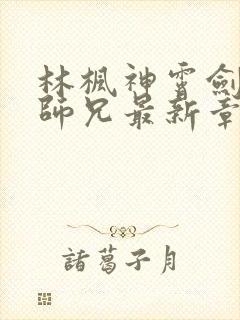 林楓神霄劍
師兄最新章
諸葛子月